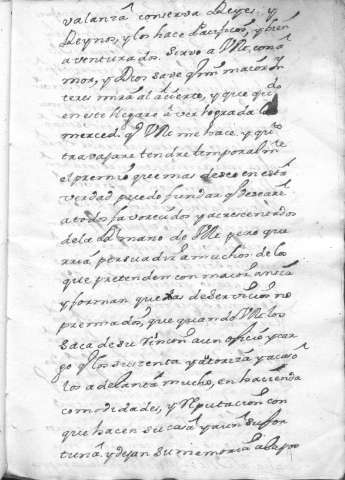 valanza conserva Reyes. y
Reynos, y los hace Pacificos, y bien
aventurados. Sirvo a VM. con a
mor, y Dios save q mi maior in
teres mira al acierto, y que quando
en este llegare a ver lograda la
merced q VM. me hace, y q
travajare tendre temporalm.te
el premio que mas deseo en esta
verdad puedo fundar q deseare
a todos favorecidos y acrecentados
de la R.l mano de VM. pero que
rria persuadir a muchos de los
que pretenden con maior ansia
y forman quexa de servicios no
premiados, que quando VM. los
saca de su rincon a un oficio y car
go q los sustenta y autoriza y acaso
los adelanta mucho, en hacienda
comodidades, y reputacion con
que hacen su casa y aun su for
tuna y dejan su memoria